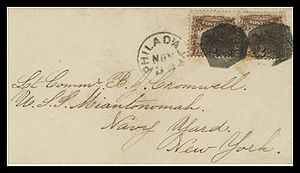 PHILAD'A
NOV
Lt Comm'r. B. J. Cromwell.
U.S.S Miantonomah.
Navy Yard.
New York.